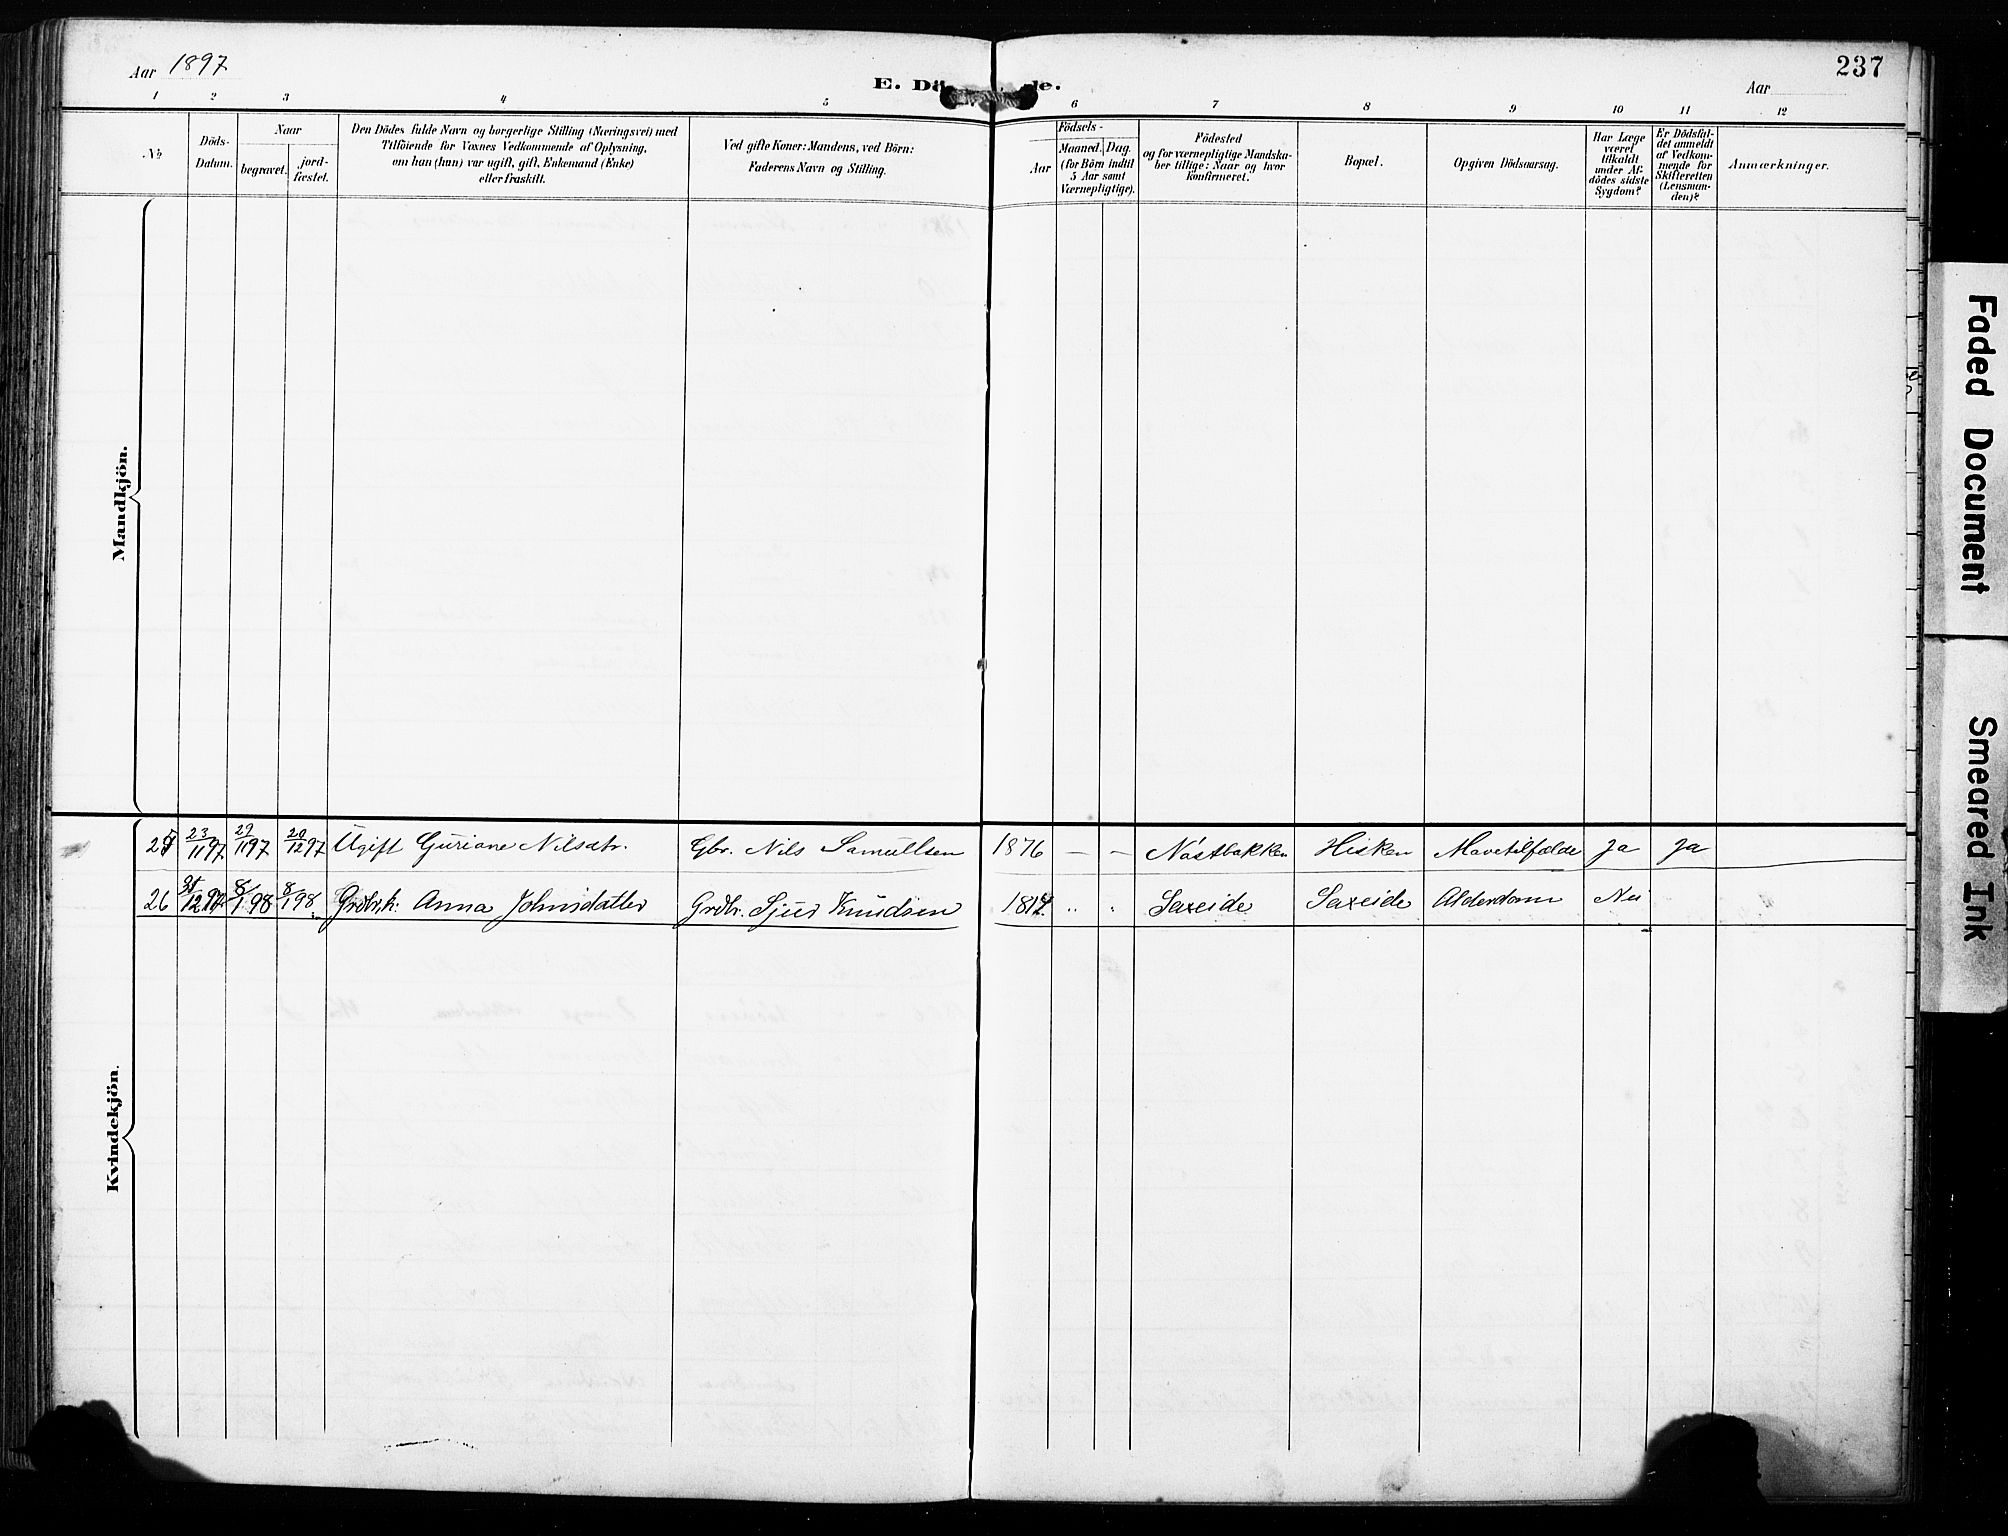 Aar 1897
E. Dö de.
Aar
237
1 2 3 4 5 6 7 8 9 10 11 12
No
Döds-
Datum.
Naar
begravet.
jord-
fæstet.
Den Dödes fulde Navn og borgerlige Stilling (Næringsvei) med
Tilföiende for Voxnes Vedkommende af Oplysning,
om han (hun) var ugift, gift, Enkemand (Enke)
eller fraskilt.
Ved gifte Koner: Mandens, ved Börn:
Faderens Navn og Stilling.
Födsels-
Aar
Maaned.
Dag.
(for Börn indtil
5 Aar samt
Værnepligtige).
Födested
og for værnepligtige Mandska-
ber tillige: Naar og hvor
konfirmeret.
Bopæl.
Opgiven Dödsaarsag.
Har Læge
været
tilkaldt
under Af-
dödes sidste
Sygdom?
Er Dödsfal-
det anmeldt
af Vedkom-
mende for
Skifteretten
(Lensman-
den)?
Anmærkninger.
Mandkjön.
Kvindekjön.
25 23/11 97 29/11 97 20/12 97 Ugift Guriane Nilsdtr. Gbr. Nils Samuelsen 1876 — — Nástbakken Hisken Mavetilfælde Ja Ja
26 31/12 97 8/1 98 8/1 98 Grdbr.k. Anna Johnsdatter Grdbr. Sjur Knudsen 1814 " " Saxeide Saxeide Alderdom Nei
Faded Document
Smeared Ink